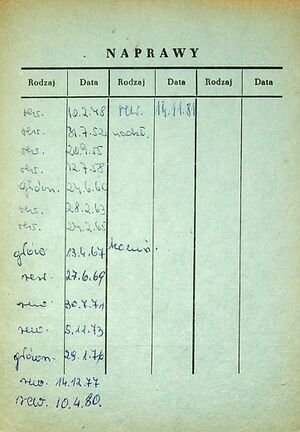 NAPRAWY
Rodzaj Data Rodzaj Data Rodzaj Data
rew. 10.2.48 rew. 14.11.81
rew. 31.7.52 nadzł.
rew. 20.9.55
rew. 12.7.58
główn. 24.6.60
rew. 28.2.63
rew. 24.2.65
główn 13.4.67
rew. 27.6.69
rew. 30.7.71
rew. 5.12.73
główn. 29.1.76
rew. 14.12.77
rew. 10.4.80.